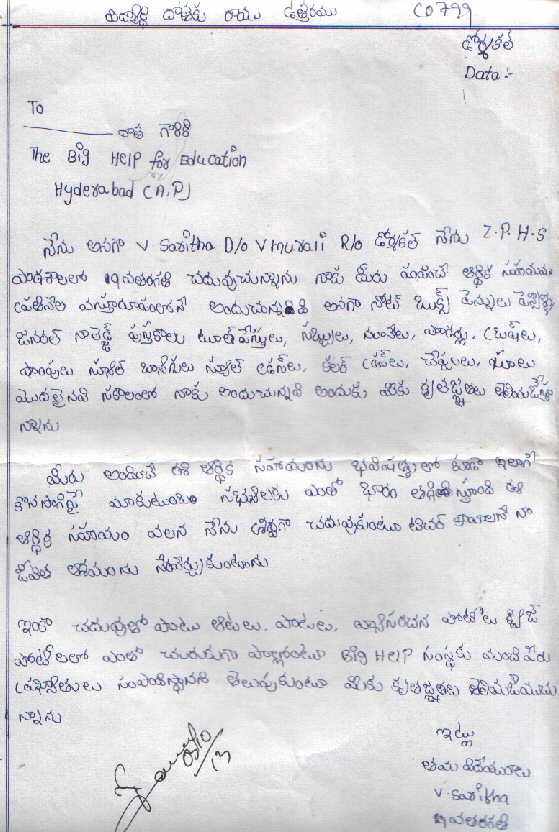 విద్యార్థి దాతకు రాయు ఉత్తరము C0799
డోర్నకల్
Data :-
To
దాత గారికి
The Big HELP for Education
Hyderabad (A.P)
నేను అనగా V Saritha D/o V murali R/o డోర్నకల్ నేను Z.P.H.S
పాఠశాలలో 9వతరగతి చదువుచున్నాను నాకు మీరు పంపించే ఆర్థిక సహాయము
ప్రతినెల వస్తురూపంలోనే అందుచున్నది అనగా నోట్ బుక్స్ పెన్నులు పెన్సిల్స్,
జనరల్ నాలెడ్జ్ పుస్తకాలు టూత్ పేస్టులు, సబ్బులు, నూనెలు, పౌడర్లు, డ్రస్‌లు,
షాంపులు స్కూల్ బ్యాగులు స్కూల్ డ్రస్‌లు, కలర్ డ్రస్‌లు, చెప్పులు, షూలు
మొదలైనవి సకాలంలో నాకు అందుచున్నవి అందుకు మీకు కృతజ్ఞతలు తెలియజేస్తు
న్నాను
మీరు అందించే ఈ ఆర్థిక సహాయంను భవిష్యత్తులో కూడా ఇలాగే
కొనసాగిస్తే మాకుటుంబ సభ్యులకు ఎంతో భారం తగ్గిస్తుంది ఈ
ఆర్థిక సహాయం వలన నేను శ్రద్ధగా చదువుకుంటూ టీచర్ కావాలనే నా
జీవిత ఆశయంను నెరవేర్చుకుంటాను
ఇంకా చదువుతో పాటు ఆటలు, పాటలు, వ్యాసరచన పోటీలు క్విజ్
పోటీలలో ఎంతో చురుకుగా పాల్గొంటూ BIG HELP సంస్థకు మంచి పేరు
ప్రఖ్యాతులు సంపాదిస్తానని తెలుపుకుంటూ మీకు కృతజ్ఞతలు తెలియజేయుచు
న్నాను
ఇట్లు
తమ విధేయురాలు
V. Saritha
9వతరగతి